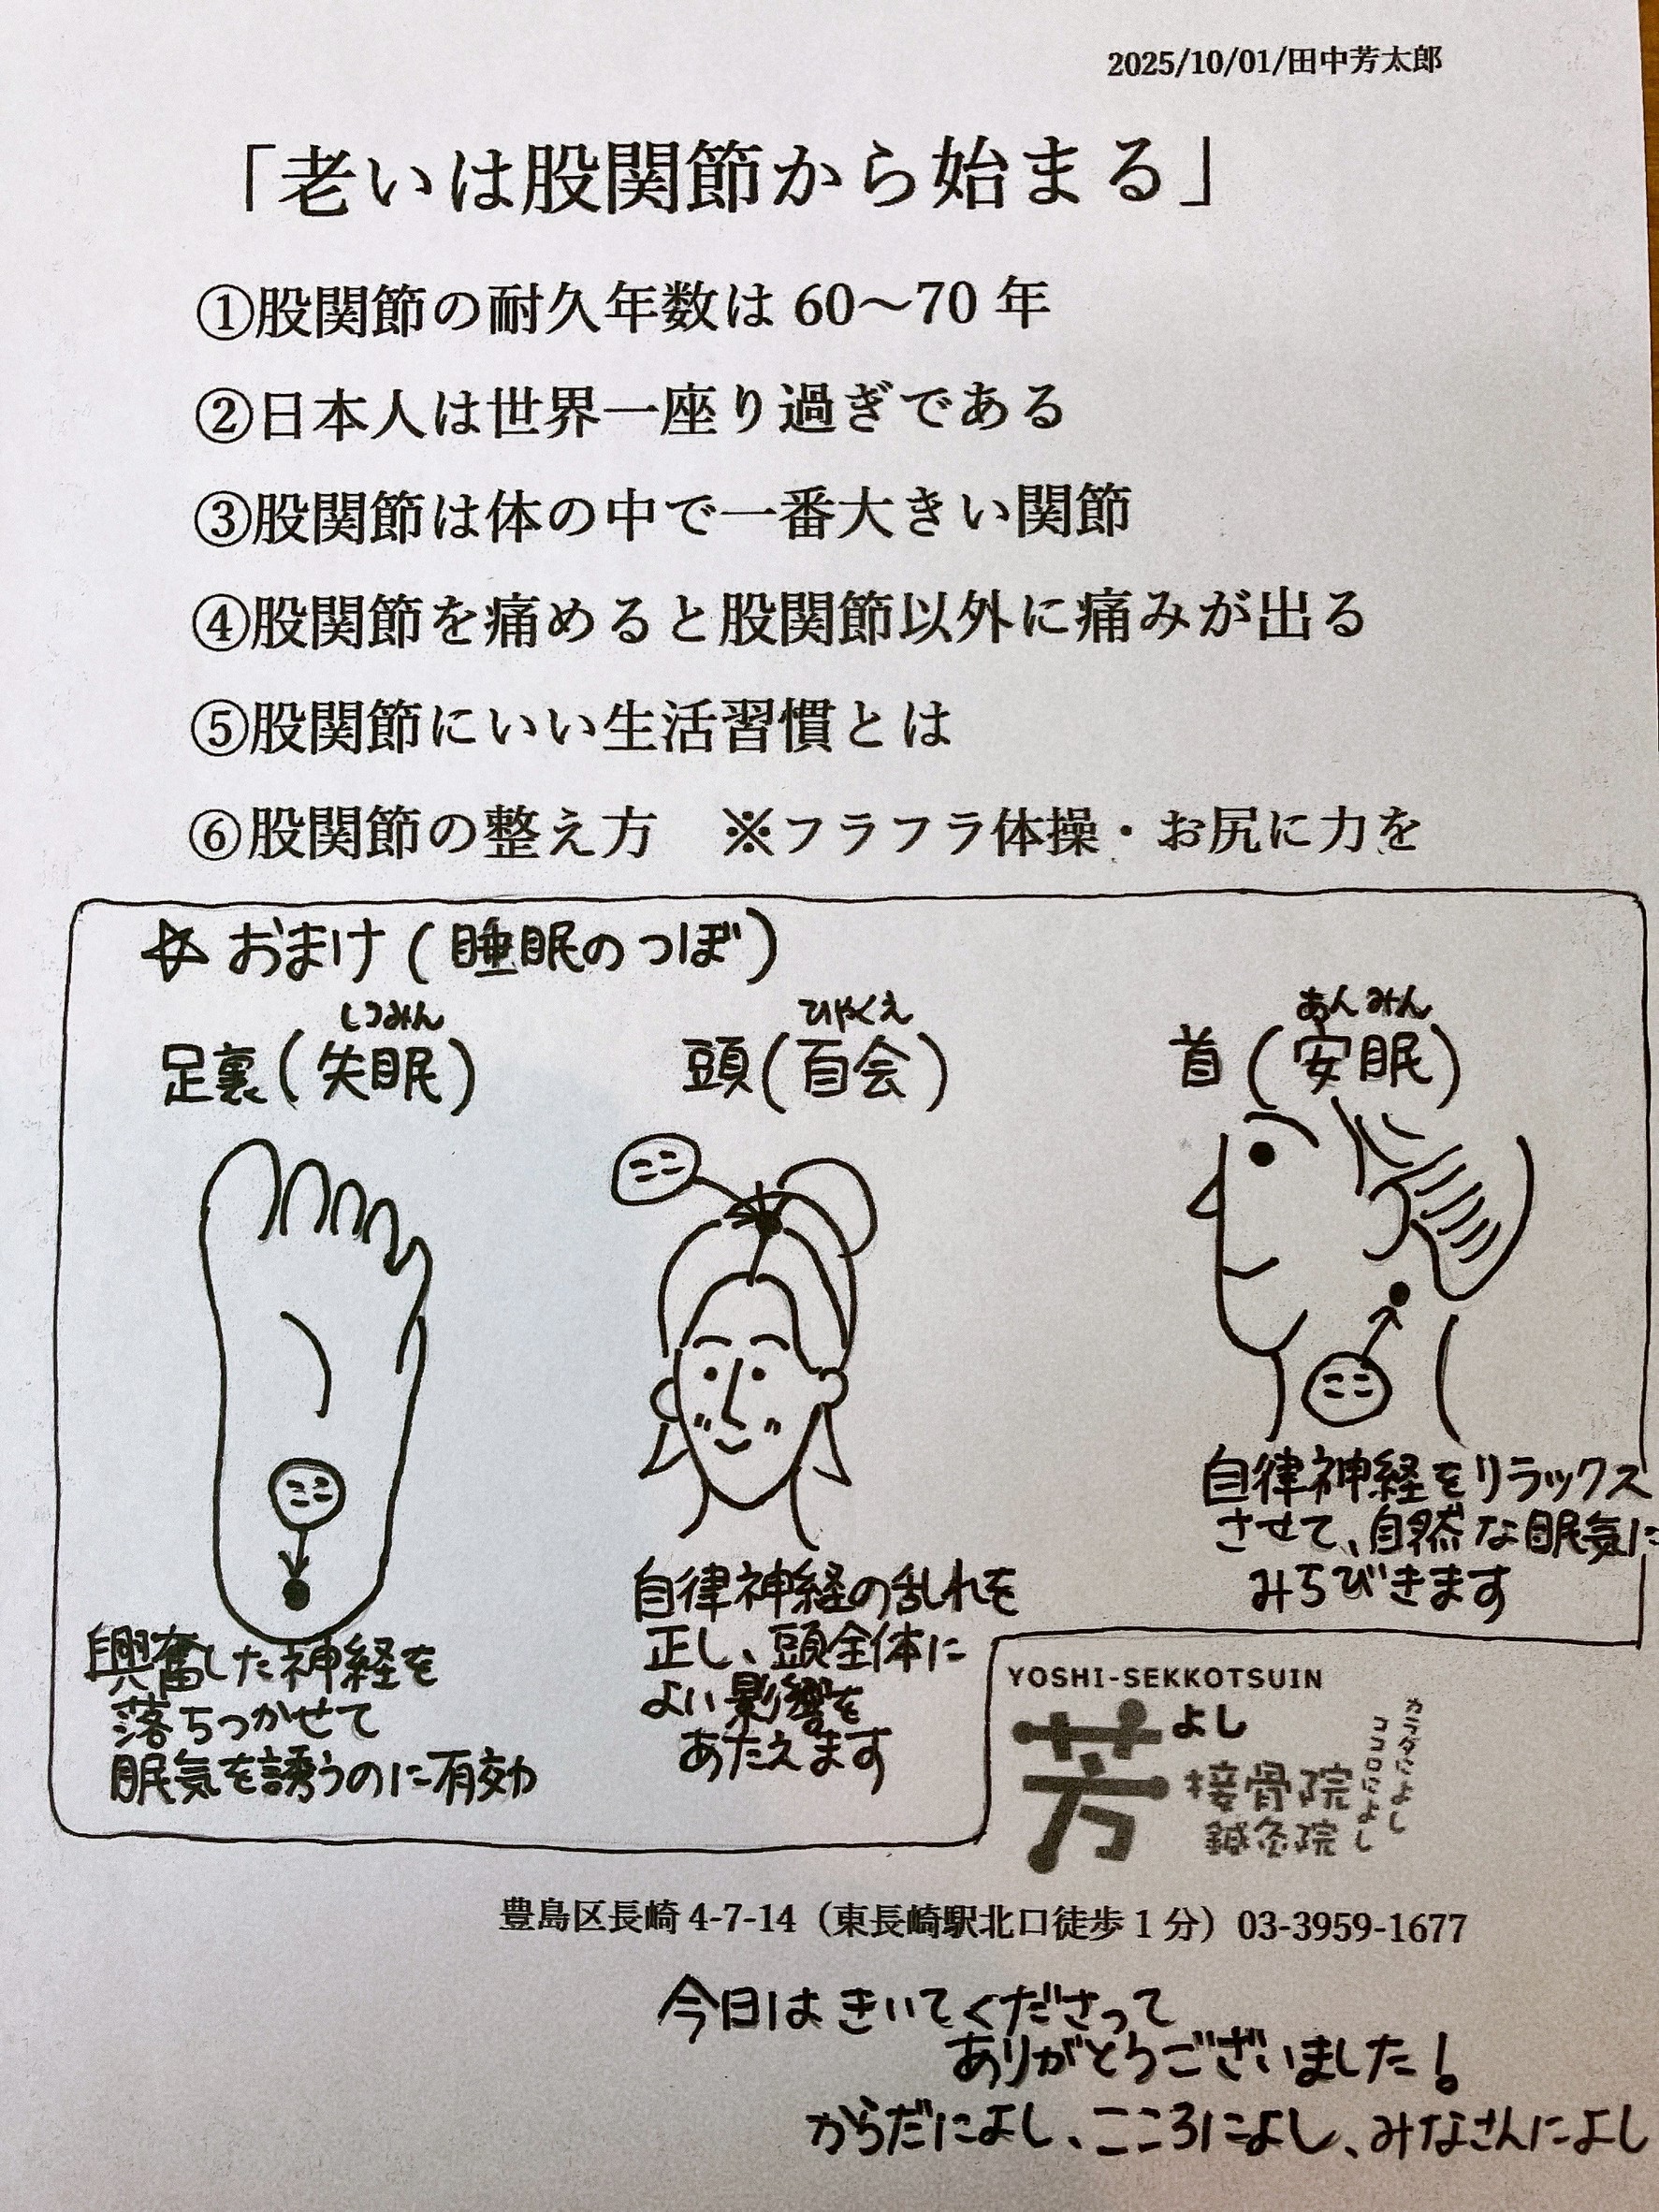 2025/10/01/田中芳太郎
「老いは股関節から始まる」
①股関節の耐久年数は 60～70 年
②日本人は世界一座り過ぎである
③股関節は体の中で一番大きい関節
④股関節を痛めると股関節以外に痛みが出る
⑤股関節にいい生活習慣とは
⑥股関節の整え方　※フラフラ体操・お尻に力を
☆おまけ(睡眠のつぼ)
しつみん
足裏(失眠)
興奮した神経を
落ちつかせて
眠気を誘うのに有効
ひゃくえ
頭(百会)
自律神経の乱れを
正し、頭全体に
よい影響を
あたえます
あんみん
首(安眠)
自律神経をリラックス
させて、自然な眠気に
みちびきます
YOSHI-SEKKOTSUIN
芳
よし
接骨院
鍼灸院
カラダによし
ココロによし
豊島区長崎 4-7-14（東長崎駅北口徒歩 1 分）03-3959-1677
今日はきいてくださって
ありがとうございました!
からだによし、こころによし、みなさんによし